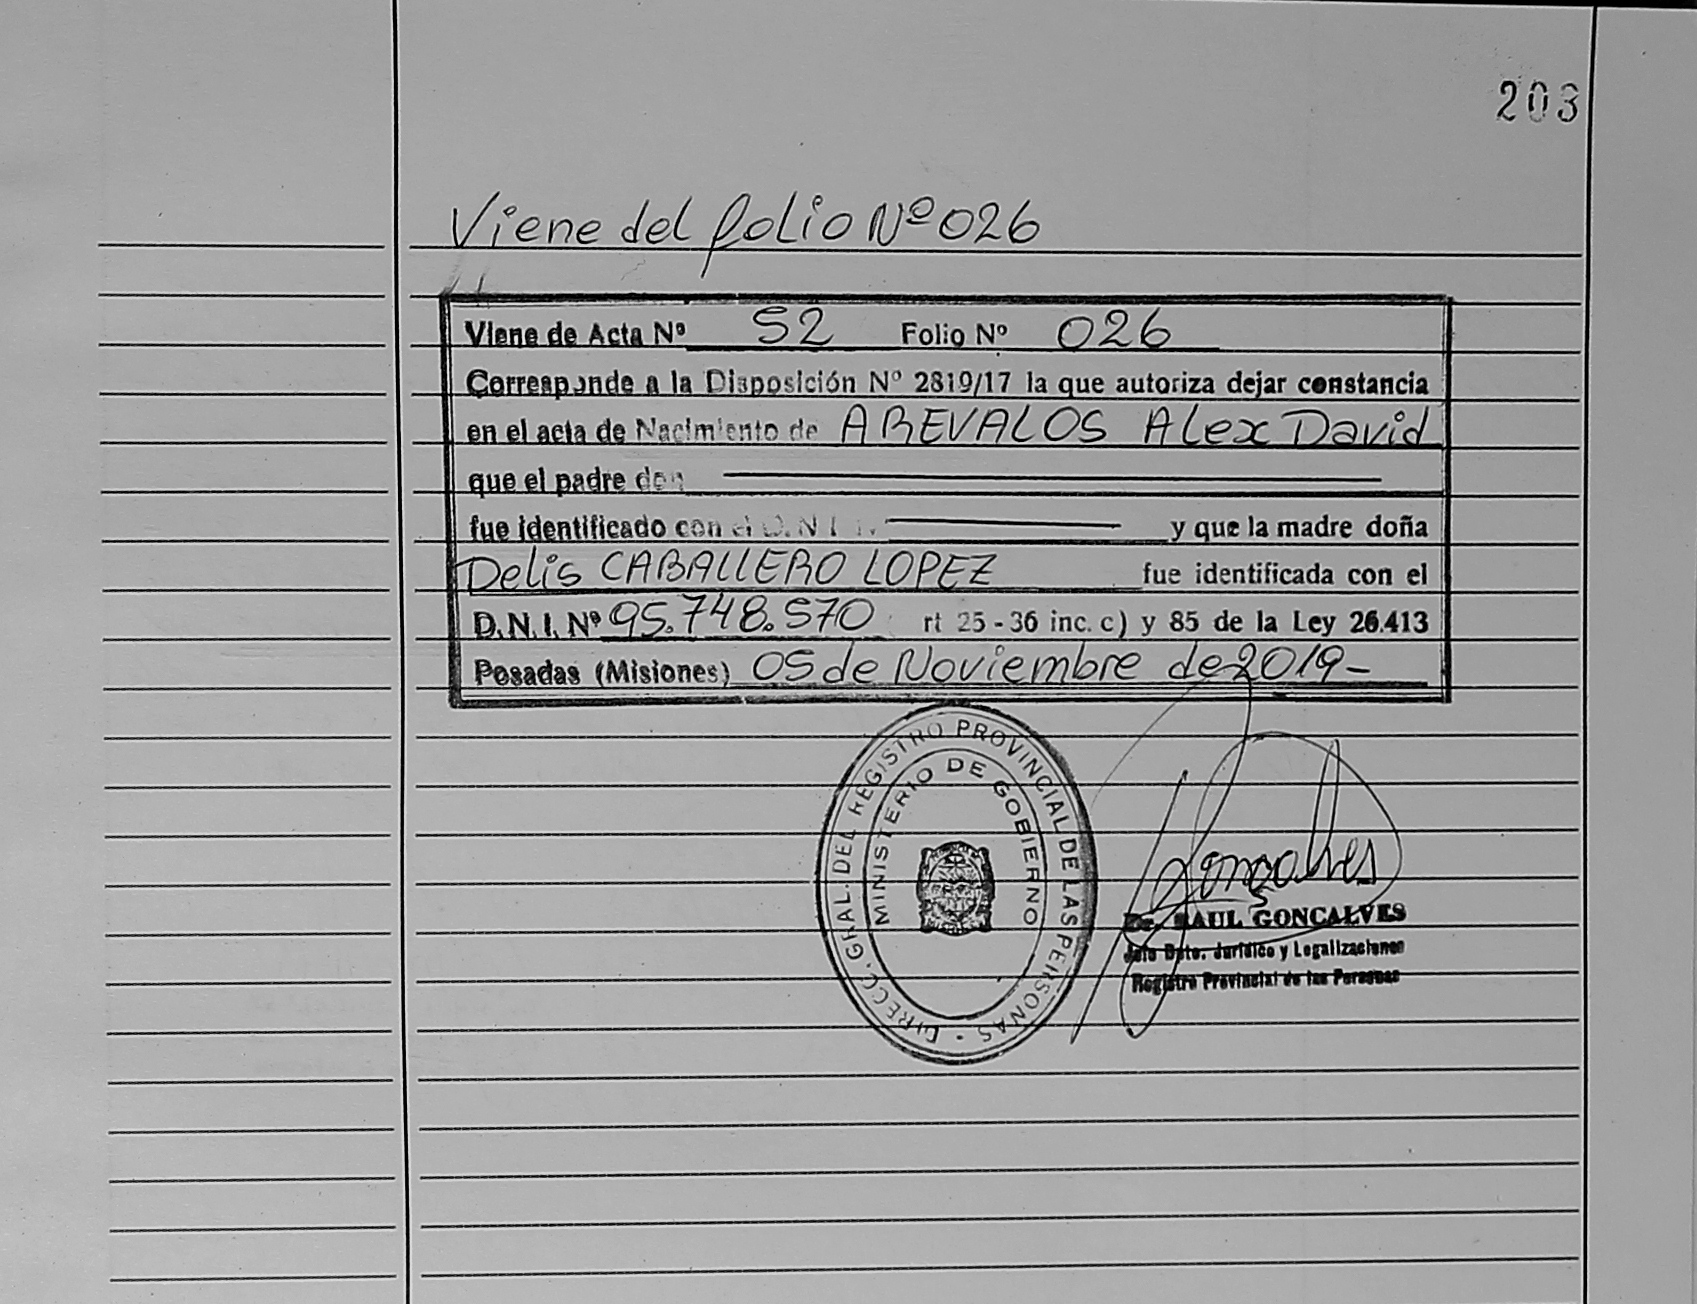 203
Viene del folio Nº 026
Viene de Acta Nº 52 Folio Nº 026
Corresponde a la Disposición Nº 2819/17 la que autoriza dejar constancia
en el acta de Nacimiento de AREVALOS Alex David
que el padre don
fue identificado con el D.N.I. y que la madre doña
Delis CABALLERO LOPEZ fue identificada con el
D.N.I. Nº 95.748.570 rt 25 - 36 inc. c) y 85 de la Ley 26.413
Posadas (Misiones) 05 de Noviembre de 2019-
DIRECC. GRAL. DEL REGISTRO PROVINCIAL DE LAS PERSONAS -
MINISTERIO DE GOBIERNO
Gonçalves
Dr. RAUL GONCALVES
Jefe Dpto. Jurídico y Legalizaciones
Registro Provincial de las Personas